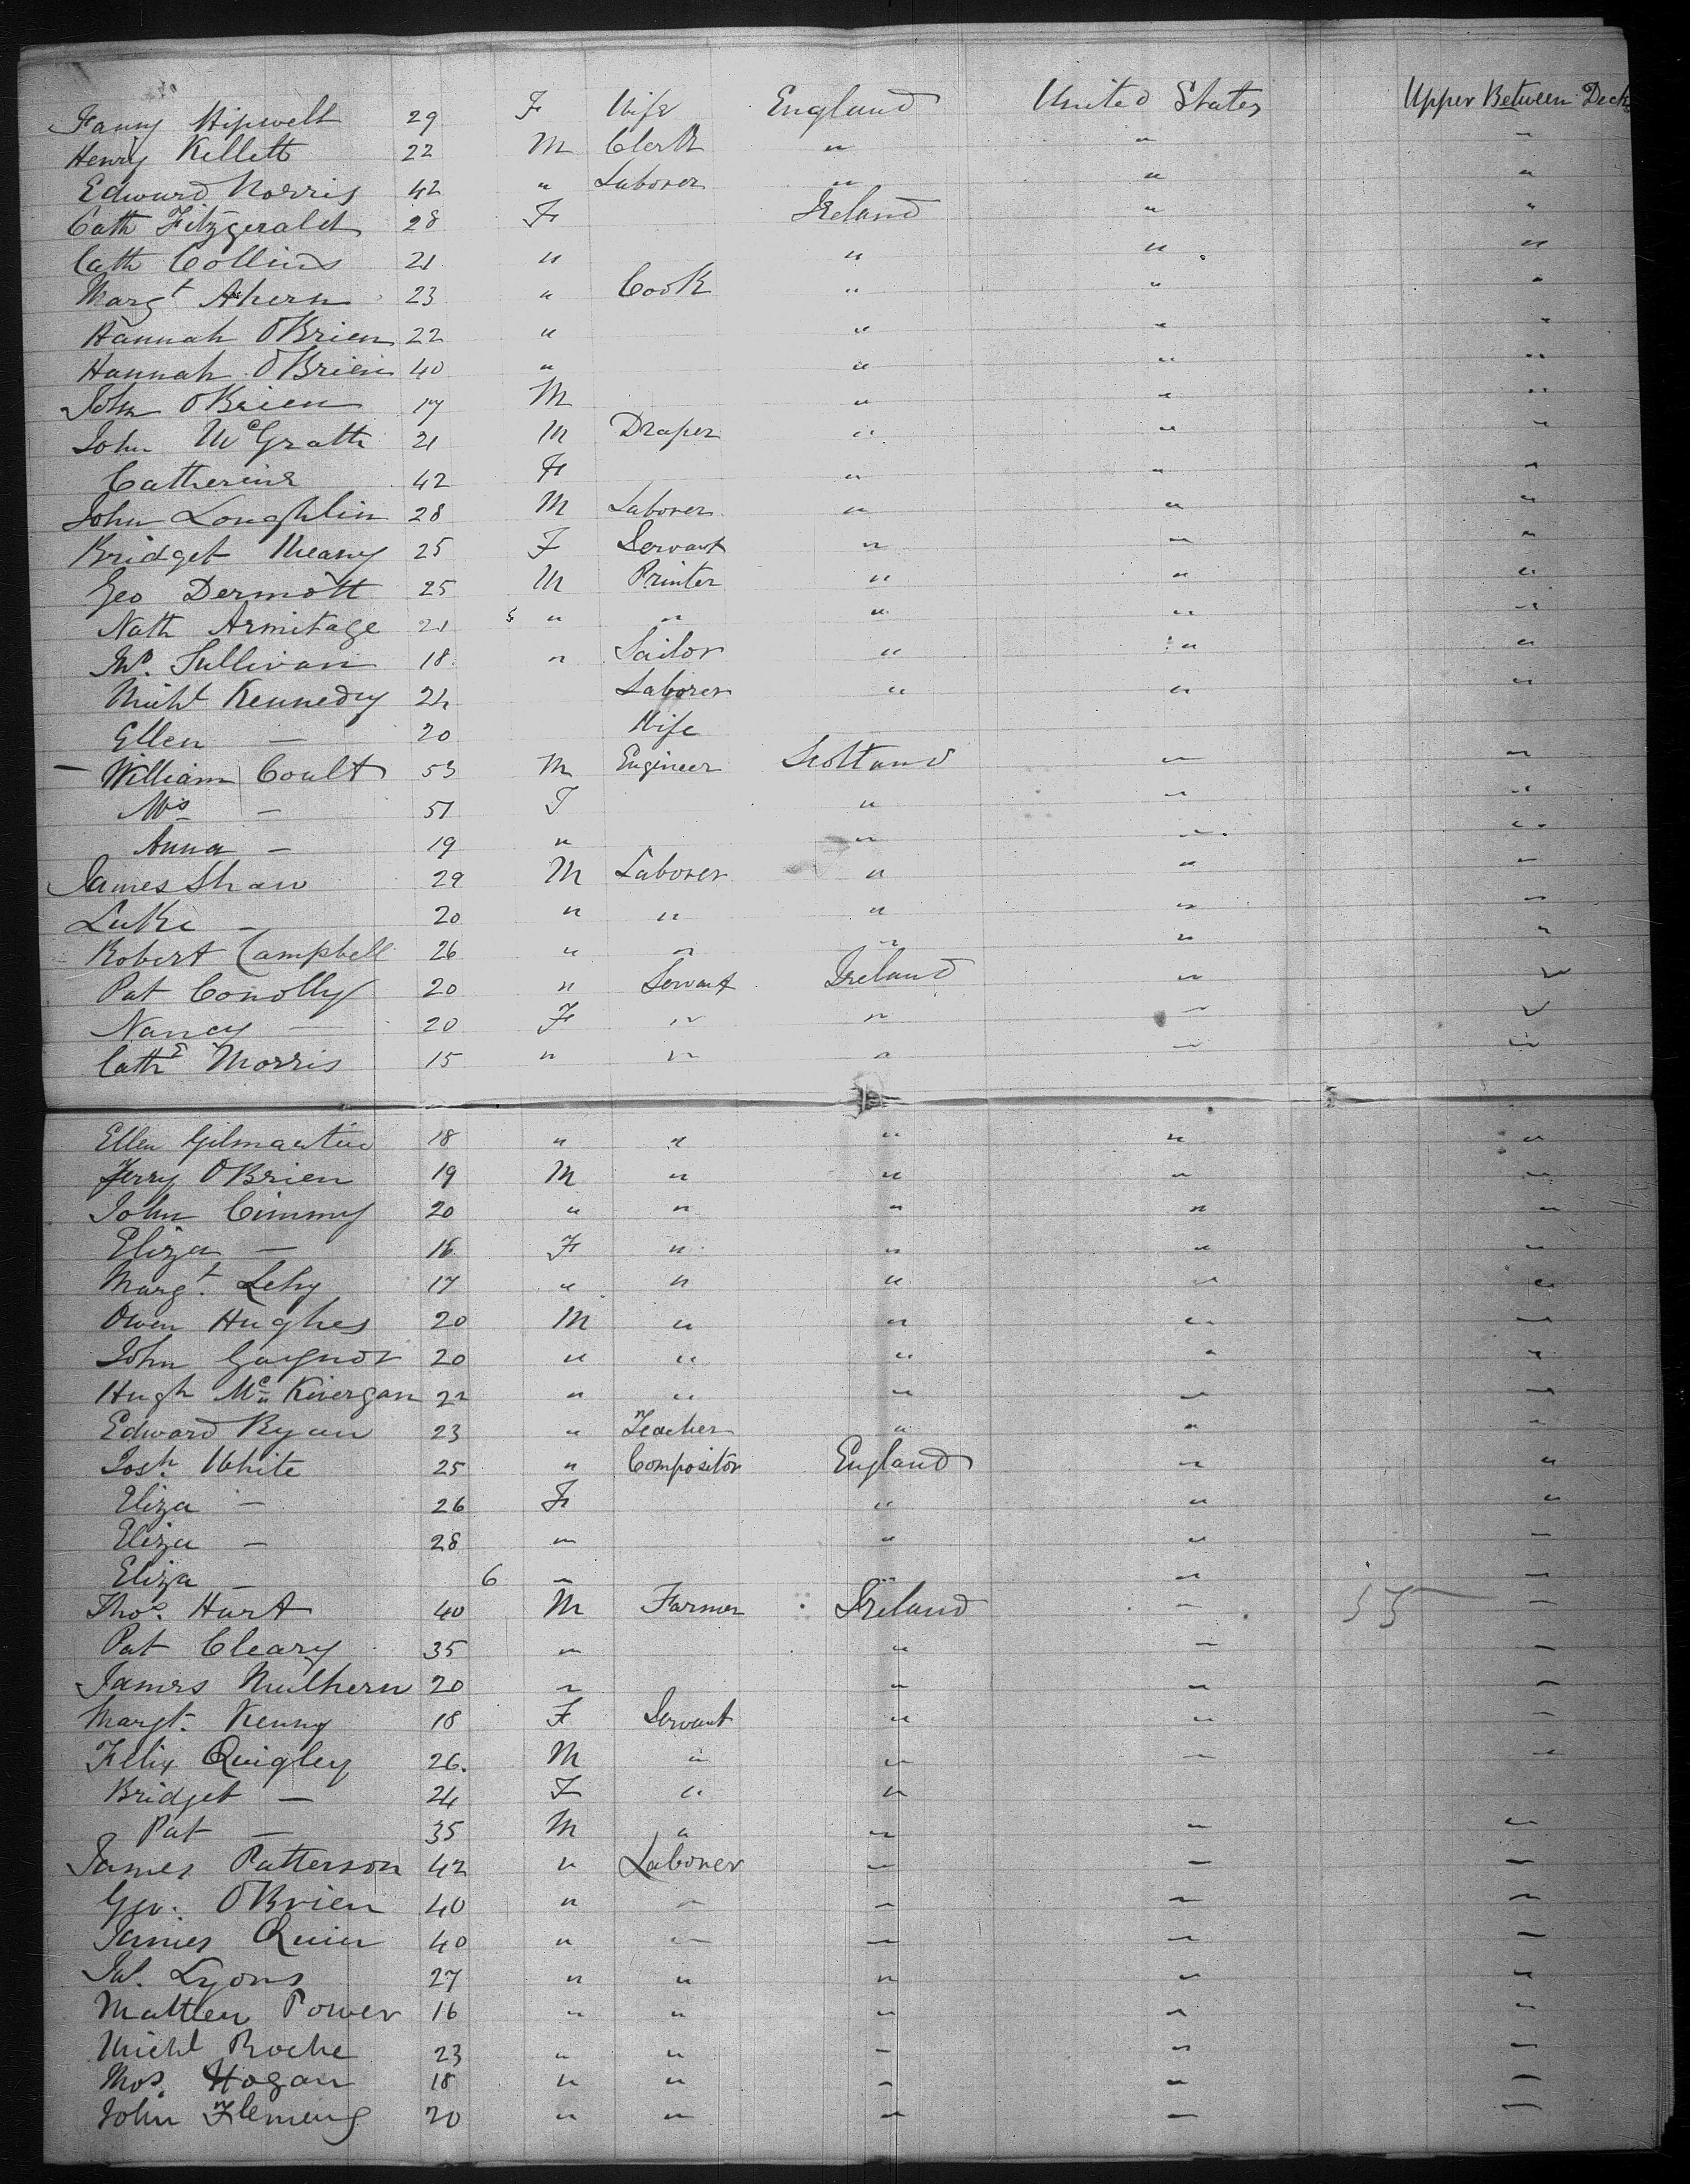 Fanny Hipwell 29 F Wife England United States Upper Between Decks
Henry Killett 22 M Clerk " " "
Edward Norris 42 " Laborer " " "
Cath Fitzgerald 28 F Ireland " "
Cath Collins 21 " " " "
Margt Ahern 23 " Cook " " "
Hannah O'Brien 22 " " " "
Hannah O'Brien 40 " " " "
John O'Brien 17 M " " "
John McGrath 21 M Draper " " "
Catherine 42 F " " "
John Loughlin 28 M Laborer " " "
Bridget Meany 25 F Servant " " "
Geo Dermott 25 M Printer " " "
Nath Armitage 21 " " " " "
Jno. Sullivan 18 " Sailor " " "
Michl Kennedy 24 Laborer " " "
Ellen — 20 Wife
William Coult 53 M Engineer Scotland " "
Mrs — 51 F " " "
Anna — 19 " " " "
James Shaw 29 M Laborer " " "
Luke — 20 " " " " "
Robert Campbell 26 " " " " "
Pat Conolly 20 " Servant Ireland " "
Nancy — 20 F " " " "
Cathe Morris 15 " " " " "
Ellen Gilmartin 18 " " " " "
Jerry O'Brien 19 M " " " "
John Cimmy 20 " " " " "
Eliza — 18 F " " " "
Margt. Lehy 17 " " " " "
Owen Hughes 20 M " " " "
John Gaynor 20 " " " " "
Hugh Mc Kivergan 22 " " " " "
Edward Ryan 23 " Teacher " " "
Josh. White 25 " Compositor England " "
Eliza — 26 F " " "
Eliza — 28 " " " "
Eliza — 6 " " " "
Thos. Hart 40 M Farmer Ireland " 55 "
Pat Cleary 35 " " " "
James Mulhern 20 " " " "
Margt. Kenny 18 F Servant " " "
Felix Quigley 26. M " " " "
Bridget — 24 F " "
Pat — 35 M " " " "
James Patterson 42 " Laborer " " "
Geo. O'Brien 40 " " " " "
James Quin 40 " " " " "
Lyons 27 " " " " "
Mattew Power 16 " " " " "
Michl Roche 23 " " " " "
Hogan 18 " " " " "
John Flemeng 20 " " " " "